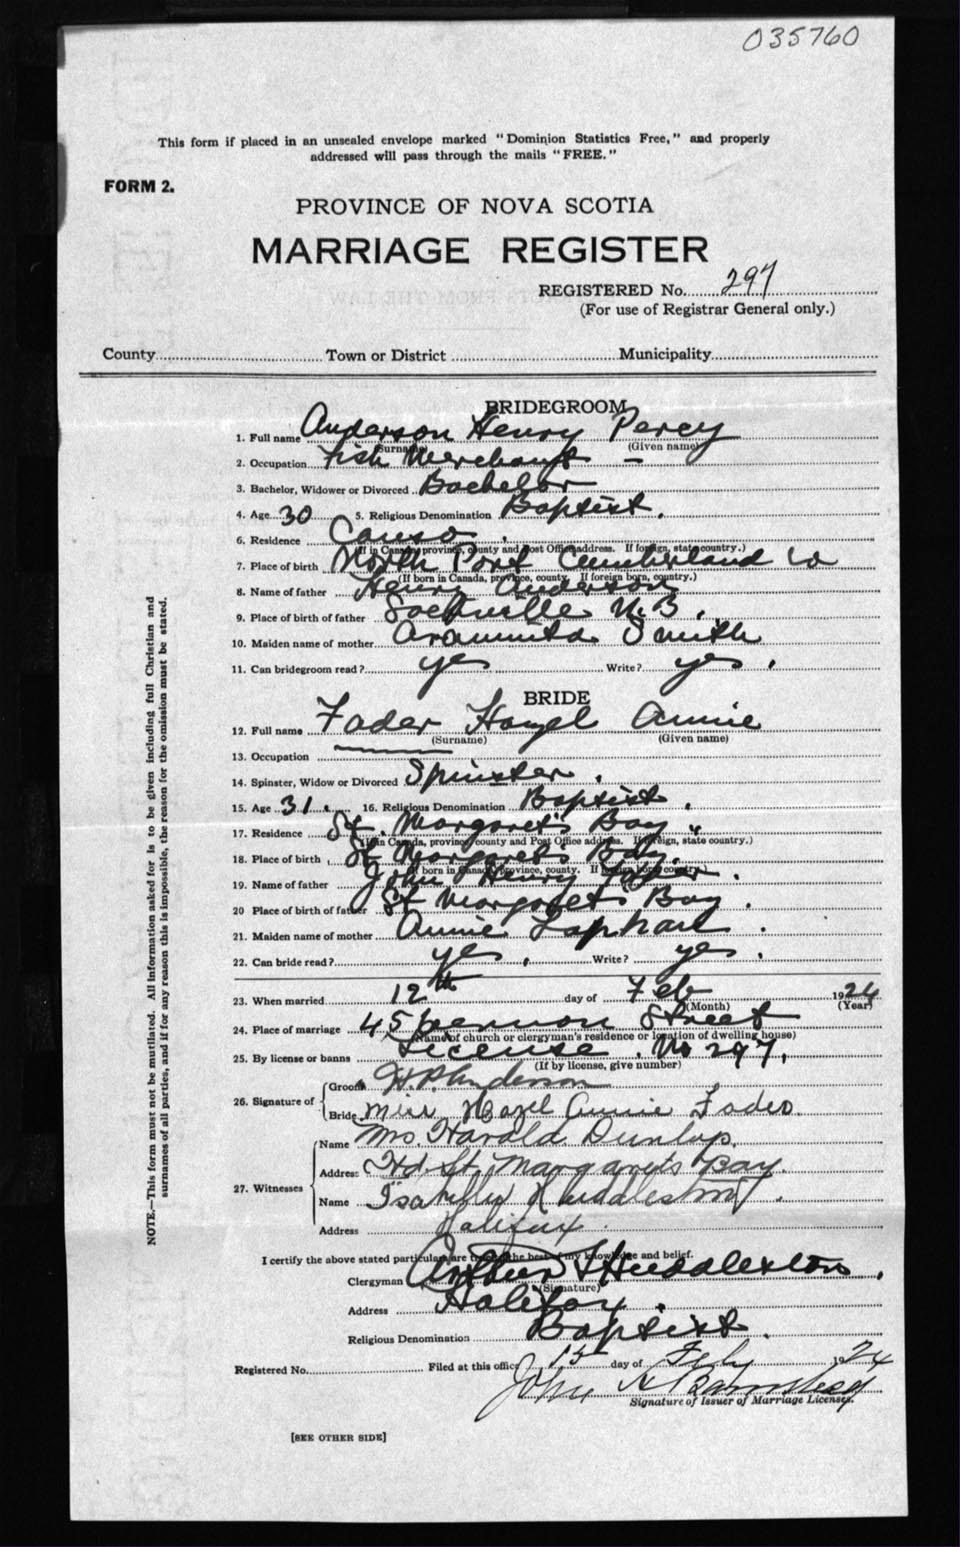 035760
This form if placed in an unsealed envelope marked "Dominion Statistics Free," and properly
addressed will pass through the mails "FREE."
FORM 2.
PROVINCE OF NOVA SCOTIA
MARRIAGE REGISTER
REGISTERED No. 297
(For use of Registrar General only.)
County Town or District Municipality
BRIDEGROOM
1. Full name Anderson Henry Percy
(Surname) (Given name)
2. Occupation Fish Merchant –
3. Bachelor, Widower or Divorced Bachelor
4. Age 30 5. Religious Denomination Baptist.
6. Residence Canso.
(If in Canada, province, county and Post Office address. If foreign, state country.)
7. Place of birth North Port Cumberland Co
(If born in Canada, province, county. If foreign born, country.)
8. Name of father Henry Anderson
9. Place of birth of father Sackville N.B.
10. Maiden name of mother Araminta Smith
11. Can bridegroom read? yes Write? yes.
BRIDE
12. Full name Fader Hazel Annie
(Surname) (Given name)
13. Occupation
14. Spinster, Widow or Divorced Spinster.
15. Age 31. 16. Religious Denomination Baptist.
17. Residence St. Margaret's Bay
(If in Canada, province, county and Post Office address. If foreign, state country.)
18. Place of birth St Margaret's Bay.
(If born in Canada, province, county. If foreign born, country.)
19. Name of father John Henry Fader.
20 Place of birth of father St Margaret's Bay.
21. Maiden name of mother Annie.
22. Can bride read? yes. Write? yes.
23. When married 12th day of Feb 1924
(Month) (Year)
24. Place of marriage 45 Vernon Street
(Name of church or clergyman's residence or location of dwelling house)
25. By license or banns License. No 297.
(If by license, give number)
26. Signature of
Groom H P Anderson
Bride Miss Hazel Annie Fader.
27. Witnesses
Name Mrs Harold Dunlop.
Address Hd. St. Margarets Bay.
Name Isabella Huddleston.
Address Halifax.
I certify the above stated particulars are true to the best of my knowledge and belief.
Clergyman Arthur Huddleston.
(Signature)
Address Halifax.
Religious Denomination Baptist.
Registered No. Filed at this office 15 day of Feby 1924
John
Signature of Issuer of Marriage Licenses.
[SEE OTHER SIDE]
NOTE.—This form must not be mutilated. All information asked for is to be given including full Christian and
surnames of all parties, and if for any reason this is impossible, the reason for the omission must be stated.